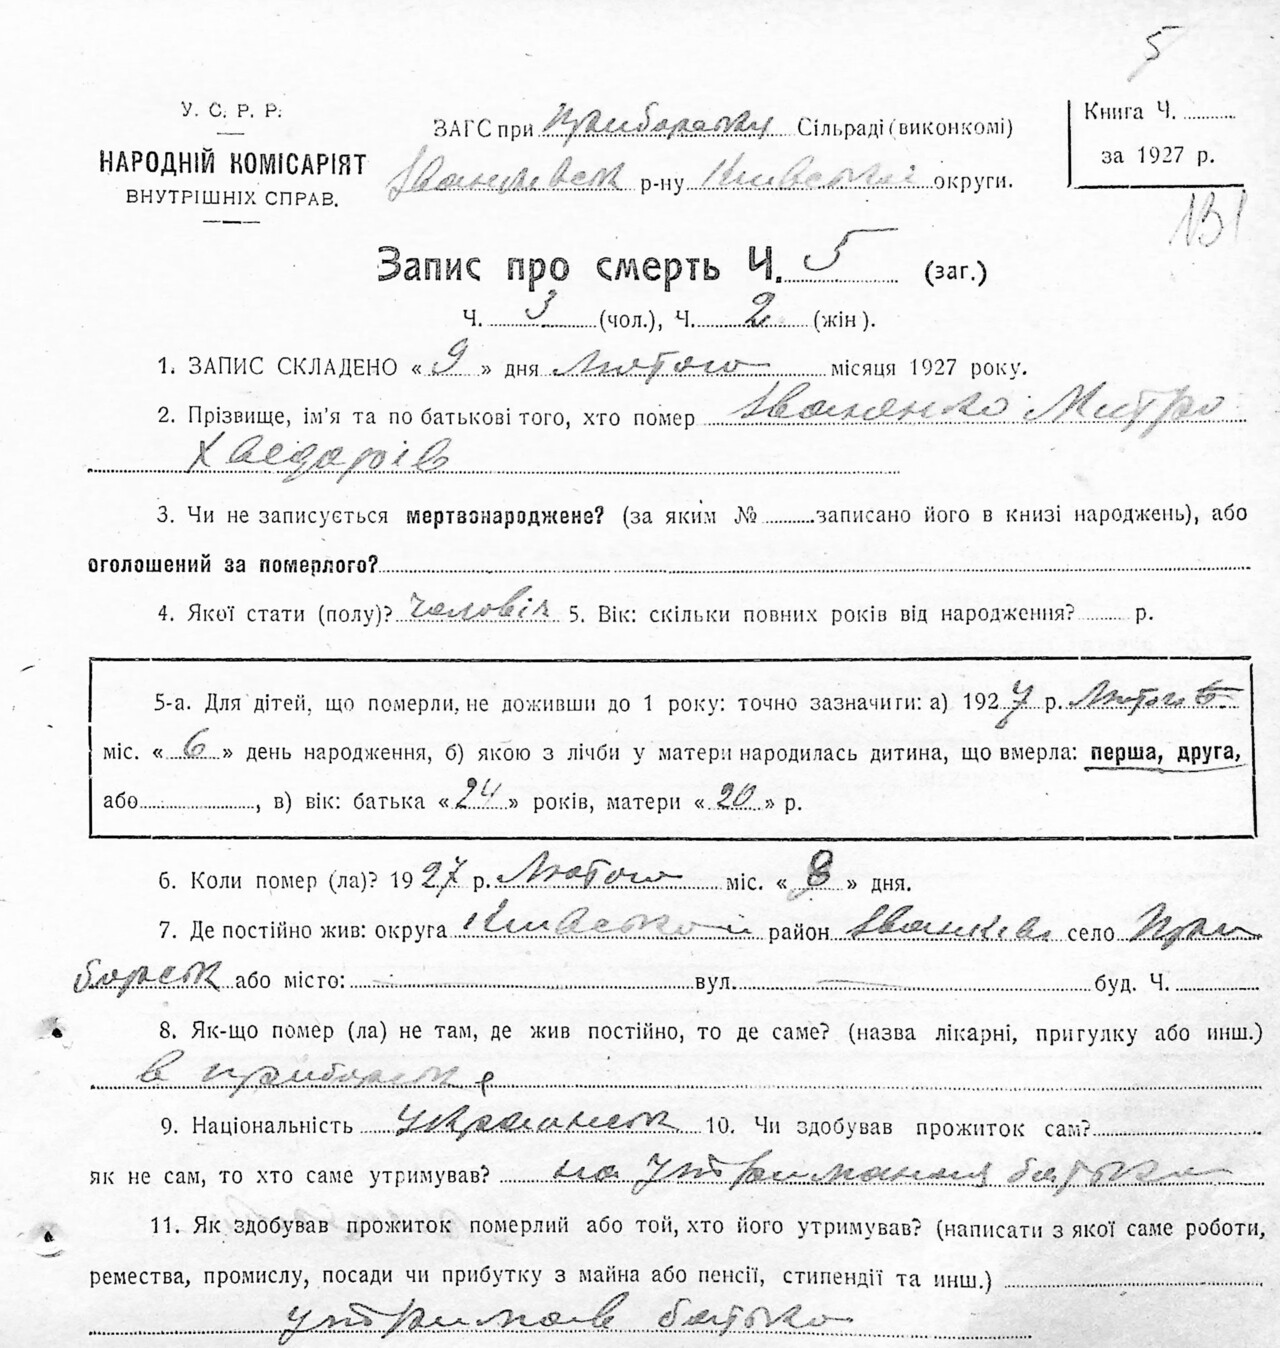 5
У. С. Р. Р.
НАРОДНІЙ КОМІСАРІЯТ
ВНУТРІШНІХ СПРАВ.
ЗАГС при Приборську Сільраді (виконкомі)
р-ну Київської округи.
Книга Ч.
за 1927 р.
Запис про смерть Ч. 5 (заг.)
Ч. 3 (чол.), Ч. 2 (жін).
1. ЗАПИС СКЛАДЕНО « 9 » дня Лютого місяця 1927 року.
2. Прізвище, ім'я та по батькові того, хто помер Іваненко Митро
Хведорів
3. Чи не записується мертвонароджене? (за яким № записано його в книзі народжень), або
оголошений за померлого?
4. Якої стати (полу)? чоловіч 5. Вік: скільки повних років від народження? р.
5-а. Для дітей, що померли, не доживши до 1 року: точно зазначити: а) 1927 р. Лютого
міс. « 6 » день народження, б) якою з лічби у матери народилась дитина, що вмерла: перша, друга,
або , в) вік: батька « 24 » років, матери « 20 » р.
6. Коли помер (ла)? 1927 р. Лютого міс. « 8 » дня.
7. Де постійно жив: округа Київської район Іванків село При
борськ або місто: вул. буд. Ч.
8. Як-що помер (ла) не там, де жив постійно, то де саме? (назва лікарні, пригулку або инш.)
в Приборськ
9. Національність українськ 10. Чи здобував прожиток сам?
як не сам, то хто саме утримував? на утримання батька
11. Як здобував прожиток померлий або той, хто його утримував? (написати з якої саме роботи,
ремества, промислу, посади чи прибутку з майна або пенсії, стипендії та инш.)
утримав батько